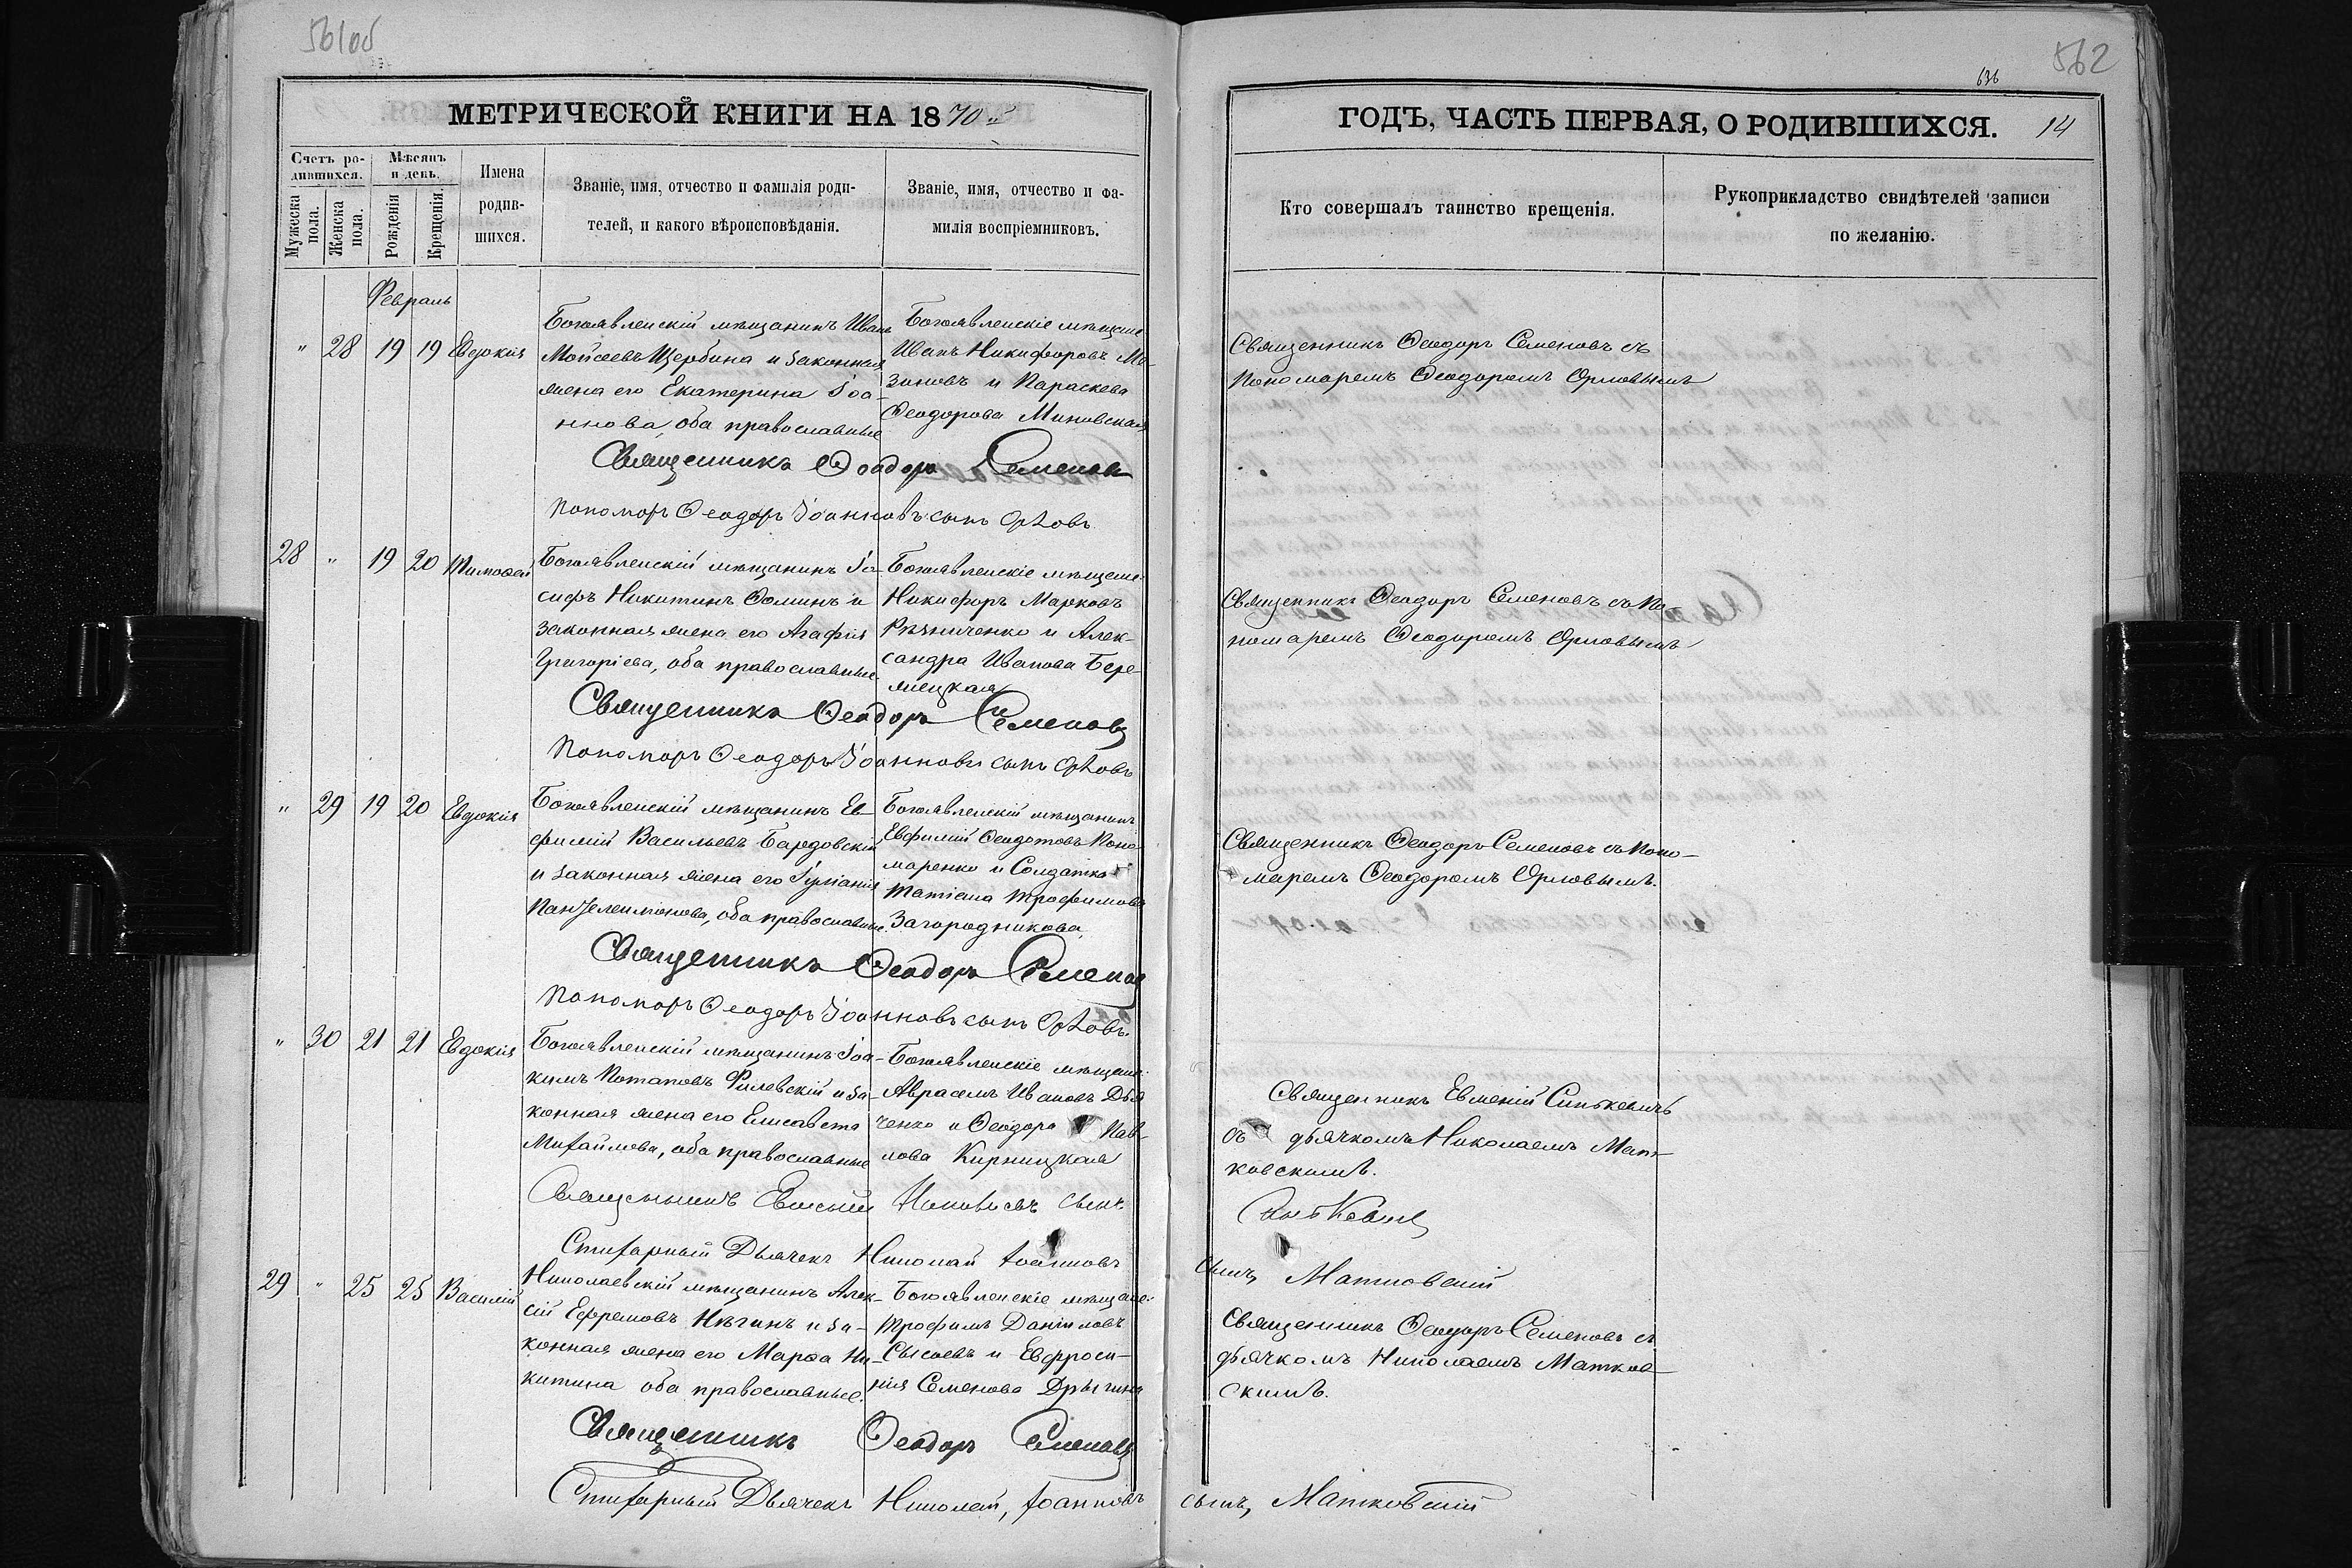 561об
562
636
МЕТРИЧЕСКОЙ КНИГИ НА 1870
ГОДЪ, ЧАСТЬ ПЕРВАЯ, О РОДИВШИХСЯ. 14
Счетъ родившихся.
Мужеска пола.
Женска пола.
Мѣсяцъ и день.
Рожденія
Крещенія.
Имена родившихся.
Званіе, имя, отчество и фамилія роди-
телей, и какого вѣроисповѣданія.
Званіе, имя, отчество и фа-
милія воспріемниковъ.
Кто совершалъ таинство крещенія.
Рукоприкладство свидѣтелей записи
по желанію.
Февраль
" 28 19 19 Евдокія
Богоявленскій мѣщанинъ Иванъ
Моисеевъ Щербина и законная
жена его Екатерина Іоа-
ннова, оба православные
Богоявленскіе мѣщане
Иванъ Никифоровъ Ма-
зоновъ и Параскева
Ѳеодорова Миновская
Священникъ Ѳеодоръ Семеновъ съ
Пономаремъ Ѳеодоромъ Орловымъ
Священникъ Ѳеодоръ Семеновъ
Пономарь Ѳеодоръ Іоанновъ сынъ Орловъ
28 " 19 20 Тимоѳей
Богоявленскій мѣщанинъ Іо-
сифъ Никитинъ Ѳоминъ и
законная жена его Агафія
Григоріева, оба православные
Богоявленскіе мѣщане
Никифоръ Марковъ
Рѣзниченко и Алек-
сандра Иванова Бере-
жецкая
Священникъ Ѳеодоръ Семеновъ съ По-
номаремъ Ѳеодоромъ Орловымъ
Священникъ Ѳеодоръ Семеновъ
Пономарь Ѳеодоръ Іоанновъ сынъ Орловъ
" 29 19 20 Евдокія
Богоявленскій мѣщанинъ Ев-
фимій Васильевъ Бардовскій
и законная жена его Іуліанія
Пантелеимонова, оба православные
Богоявленскій мѣщанинъ
Евфимій Ѳеодотовъ Поно-
маренко и Солдатка
Татіана Трофимова
Загородникова
Священникъ Ѳеодоръ Семеновъ съ Поно-
маремъ Ѳеодоромъ Орловымъ.
Священникъ Ѳеодоръ Семеновъ
Пономарь Ѳеодоръ Іоанновъ сынъ Орловъ.
" 30 21 21 Евдокія
Богоявленскій мѣщанинъ Іоа-
кимъ Потаповъ Филевскій и за-
конная жена его Елисавета
Михайлова, оба православные
Богоявленскіе мѣщане
Авраамъ Ивановъ Дья
ченко и Ѳеодора Пав-
лова Кирницкая
Священникъ Евмений Синькевичъ
съ дьячкомъ Николаемъ Мат-
ковскимъ.
Священникъ Евмений сынъ
Синькевичъ
Стихарный Дьячекъ Николай Іоанновъ
сынъ, Матковскій
29 " 25 25 Василій
Николаевскій мѣщанинъ Алек-
сій Ефремовъ Нѣгинъ и за-
конная жена его Марѳа Ни-
китина оба православные.
Богоявленскіе мѣщане
Трофимъ Даниловъ
Сысоевъ и Евфроси-
нія Семенова Дрыгина
Священникъ Ѳеодоръ Семеновъ съ
дьячкомъ Николаемъ Матков-
скимъ.
Священникъ Ѳеодоръ Семеновъ
Стихарный Дьячекъ Николай, Іоанновъ
сынъ, Матковскій